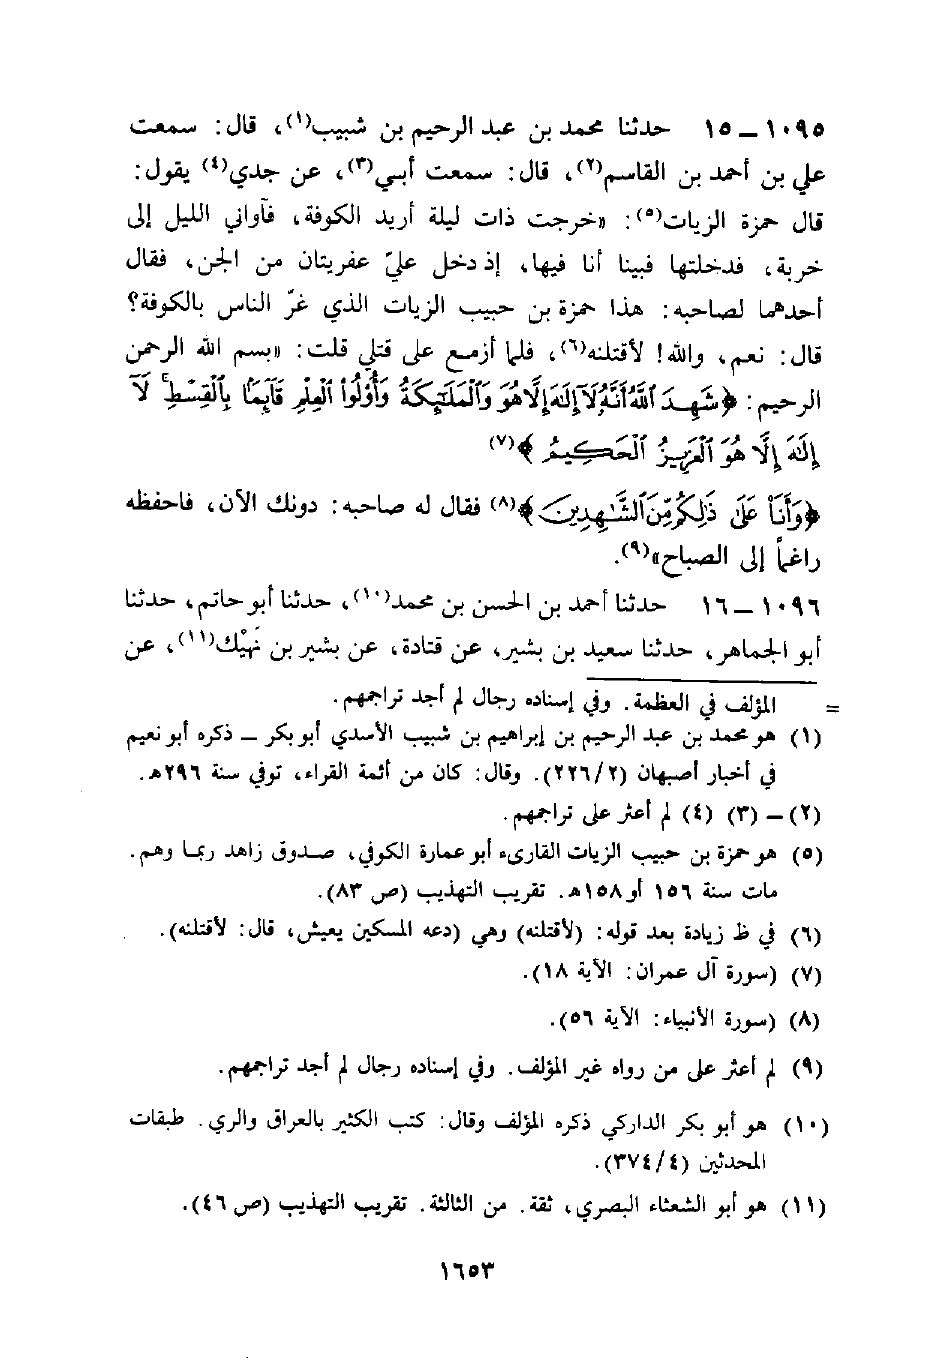 ١٠٩٥ – ١٥ حدثنا محمد بن عبد الرحيم بن شبيب(١)، قال: سمعت
علي بن أحمد بن القاسم(٢)، قال: سمعت أبي(٣)، عن جدي(٤) يقول:
قال حمزة الزيات(٥): «خرجت ذات ليلة أريد الكوفة، فآواني الليل إلى
خربة، فدخلتها فبينا أنا فيها، إذ دخل عليّ عفريتان من الجن، فقال
أحدهما لصاحبه: هذا حمزة بن حبيب الزيات الذي غرّ الناس بالكوفة؟
قال: نعم، والله! لأقتلنه(٦)، فلما أزمع على قتلي قلت: «بسم الله الرحمن
الرحيم: ﴿شَهِدَ ٱللَّهُ أَنَّهُۥ لَآ إِلَٰهَ إِلَّا هُوَ وَٱلْمَلَٰٓئِكَةُ وَأُو۟لُوا۟ ٱلْعِلْمِ قَآئِمًۢا بِٱلْقِسْطِ ۚ لَآ
إِلَٰهَ إِلَّا هُوَ ٱلْعَزِيزُ ٱلْحَكِيمُ﴾(٧)
﴿وَأَنَا۠ عَلَىٰ ذَٰلِكُم مِّنَ ٱلشَّٰهِدِينَ﴾(٨) فقال له صاحبه: دونك الآن، فاحفظه
راغماً إلى الصباح»(٩).
١٠٩٦ – ١٦ حدثنا أحمد بن الحسن بن محمد(١٠)، حدثنا أبو حاتم، حدثنا
أبو الجماهر، حدثنا سعيد بن بشير، عن قتادة، عن بشير بن نَهِيْك(١١)، عن
= المؤلف في العظمة. وفي إسناده رجال لم أجد تراجمهم.
(١) هو محمد بن عبد الرحيم بن إبراهيم بن شبيب الأسدي أبو بكر – ذكره أبو نعيم
في أخبار أصبهان (٢٢٦/٢). وقال: كان من أئمة القراء، توفي سنة ٢٩٦هـ.
(٢) – (٣) (٤) لم أعثر على تراجمهم.
(٥) هو حمزة بن حبيب الزيات القارىء أبو عمارة الكوفي، صدوق زاهد ربما وهم.
مات سنة ١٥٦ أو ١٥٨هـ. تقريب التهذيب (ص ٨٣).
(٦) في ظ زيادة بعد قوله: (لأقتلنه) وهي (دعه المسكين يعيش، قال: لأقتلنه).
(٧) (سورة آل عمران: الآية ١٨).
(٨) (سورة الأنبياء: الآية ٥٦).
(٩) لم أعثر على من رواه غير المؤلف. وفي إسناده رجال لم أجد تراجمهم.
(١٠) هو أبو بكر الداركي ذكره المؤلف وقال: كتب الكثير بالعراق والري. طبقات
المحدثين (٣٧٤/٤).
(١١) هو أبو الشعثاء البصري، ثقة. من الثالثة. تقريب التهذيب (ص ٤٦).
١٦٥٣